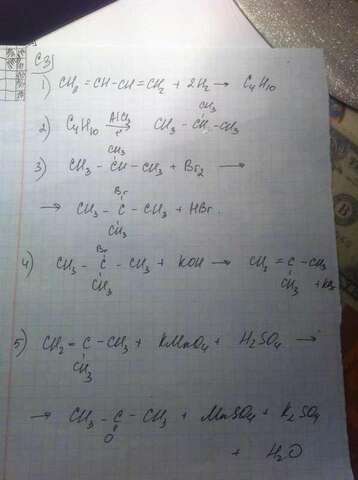 C3
1) CH2 = CH - CH = CH2 + 2H2 → C4H10
2) C4H10 AlCl3 t° → CH3 - CH - CH3
CH3
3) CH3 - CH - CH3 + Br2 →
CH3
→ CH3 - C - CH3 + HBr.
Br
CH3
4) CH3 - C - CH3 + KOH → CH2 = C - CH3
Br
CH3
CH3
5) CH2 = C - CH3 + KMnO4 + H2SO4 →
CH3
→ CH3 - C - CH3 + MnSO4 + K2SO4
O
+ H2O